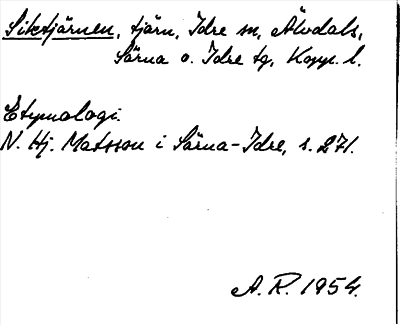 Siktjärnen, tjärn, Idre sn, Älvdals,
Särna o. Idre tg, Kopp. l.
Etymologi.
N. Hj. Matsson i Särna-Idre, s. 271.
A. R. 1954.